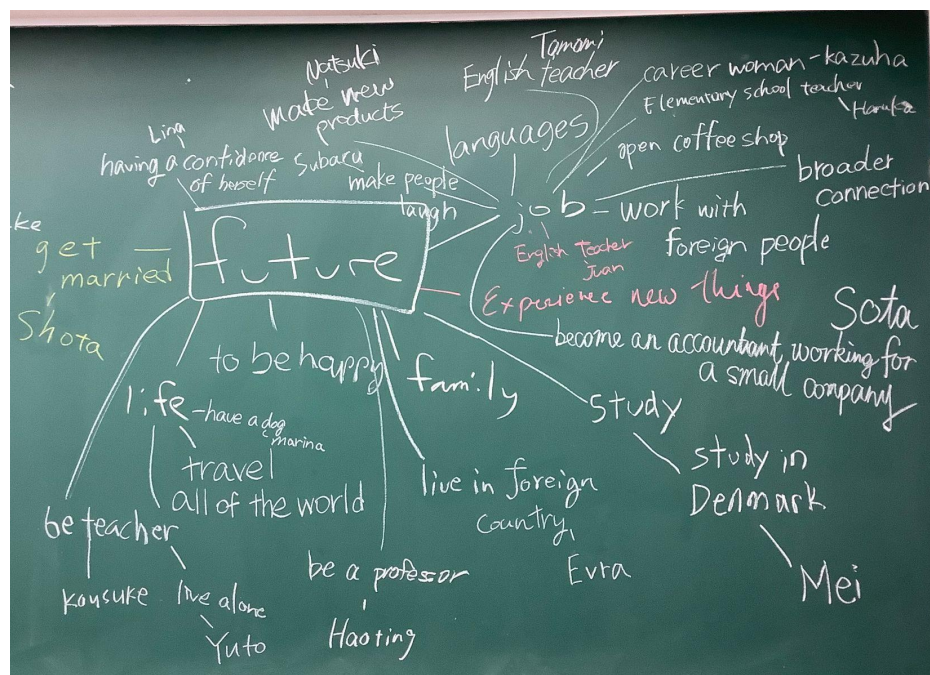 Natsuki
make new
products
Tamami
English teacher
career woman-kazuha
Elementary school teacher
Haruka
Lina
having a confidence
of herself
Subacu
make people
laugh
languages
open coffee shop
broader
connection
job - work with
foreign people
English Teacher
Juan
ke
get
married
Shota
future
Experience new things
Sota
become an accountant, working for
a small company
to be happy
family
study
life - have a dog
marina
travel
all of the world
live in foreign
country
Evra
study in
Denmark
Mei
be teacher
kousuke
live alone
Yuto
be a profesor
Haoting